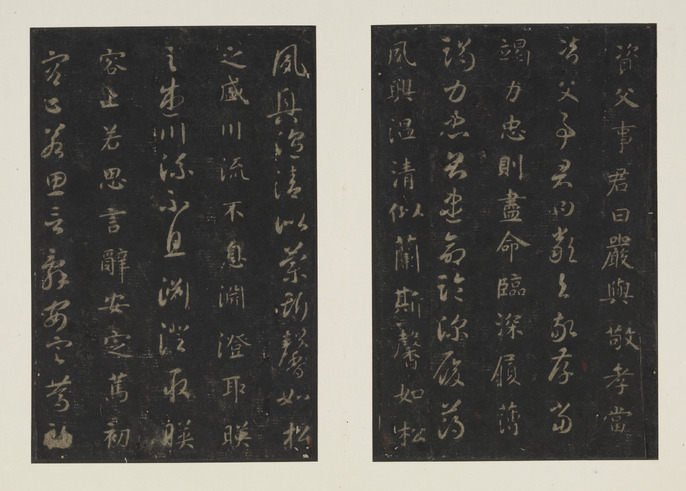 資父事君曰嚴與敬孝當
資父事君曰嚴與敬孝當
竭力忠則盡命臨深履薄
竭力忠則盡命臨深履薄
夙興溫清似蘭斯馨如松
夙興溫清似蘭斯馨如松
之盛川流不息淵澄取暎
之盛川流不息淵澄取暎
容止若思言辭安定篤初
容止若思言辭安定篤初